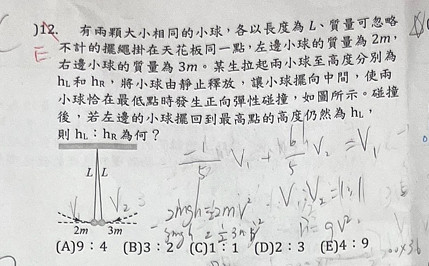 )12. 有兩顆大小相同的小球，各以長度為 L、質量可忽略
不計的擺繩掛在天花板同一點，左邊小球的質量為 2m，
E 右邊小球的質量為 3m。某生拉起兩小球至高度分別為
hL 和 hR，將小球由靜止釋放，讓小球擺向中間，使兩
小球恰在最低點時發生正向彈性碰撞，如圖所示。碰撞
後，若左邊的小球擺回到最高點的高度仍然為 hL，
則 hL：hR 為何？
-1/5 V1 + 6/5 V2 = V1
L L
V V2
2m 3m
V1:V2=1:1
2mgh=1/2mV²
(A)9：4 (B)3：2 (C)1：1 (D)2：3 (E)4：9